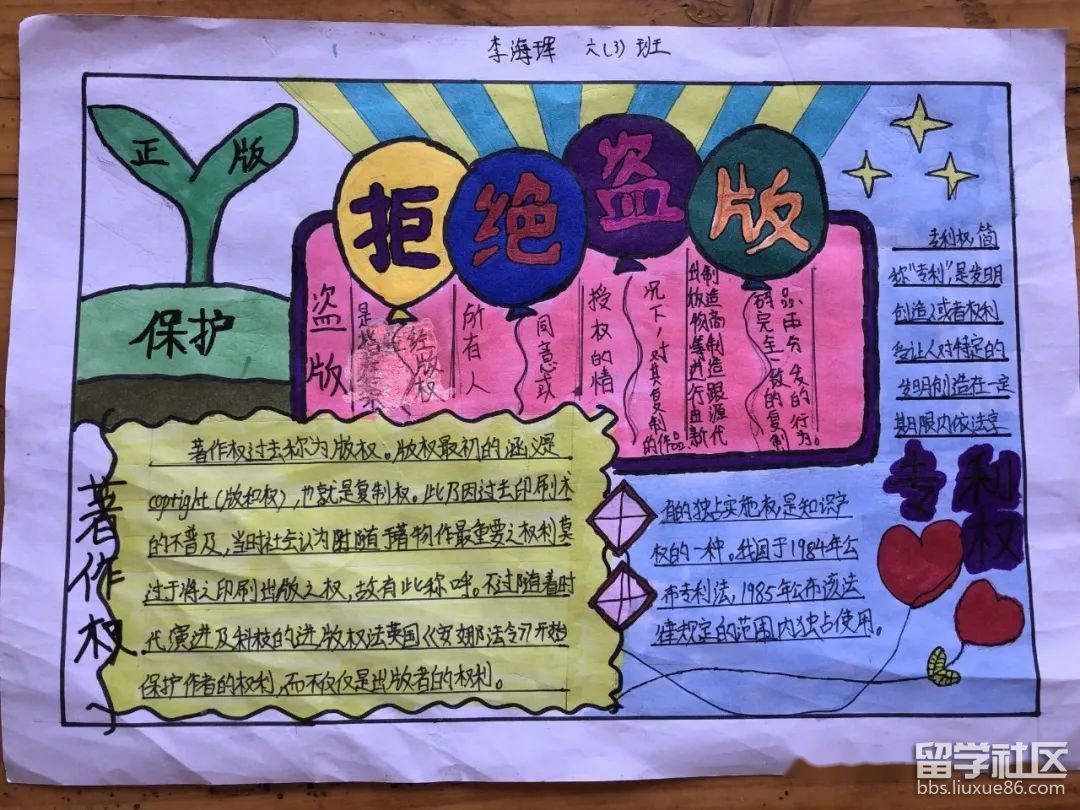 李海珲 六(3)班
正版
保护
拒绝盗版
盗版
是指在未
经版权
所有人
同意或
授权的情
况下,对其复制
的作品、
出版物等进行由新
制造商制造跟源代
码完全一致的复制
品、再分发的行为。
著作权
著作权过去称为版权。版权最初的涵义是
copright(版和权),也就是复制权。此乃因过去印刷术
的不普及,当时社会认为附随于著物作最重要之权利莫
过于将之印刷出版之权,故有此称呼。不过随着时
代演进及科技的进,版权法英国《安娜法令》开始
保护作者的权利,而不仅仅是出版者的权利。
专利权
专利权,简
称“专利”,是发明
创造人或者权利
受让人对特定的
发明创造在一定
期限内依法享
有的独占实施权,是知识产
权的一种。我国于1984年公
布专利法,1985年公布该法
律规定的范围内独占使用。
留学社区
bbs.liuxue86.com